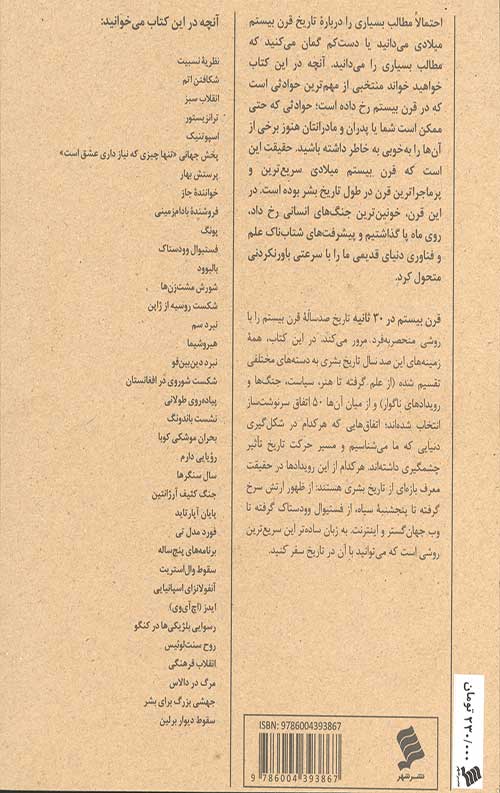 احتمالاً مطالب بسیاری را دربارهٔ تاریخ قرن بیستم
میلادی می‌دانید یا دست‌کم گمان می‌کنید که
مطالب بسیاری را می‌دانید. آنچه در این کتاب
خواهید خواند منتخبی از مهم‌ترین حوادثی است
که در قرن بیستم رخ داده است؛ حوادثی که حتی
ممکن است شما یا پدران و مادرانتان هنوز برخی از
آن‌ها را به‌خوبی به خاطر داشته باشید. حقیقت این
است که قرن بیستم میلادی سریع‌ترین و
پرماجراترین قرن در طول تاریخ بشر بوده است. در
این قرن، خونین‌ترین جنگ‌های انسانی رخ داد،
روی ماه پا گذاشتیم و پیشرفت‌های شتاب‌ناک علم
و فناوری دنیای قدیمی ما را با سرعتی باورنکردنی
متحول کرد.
قرن بیستم در ۳۰ ثانیه تاریخ صدسالهٔ قرن بیستم را با
روشی منحصربه‌فرد مرور می‌کند. در این کتاب، همهٔ
زمینه‌های این صد سال تاریخ بشری به دسته‌های مختلفی
تقسیم شده (از علم گرفته تا هنر، سیاست، جنگ‌ها و
رویدادهای ناگوار) و از میان آن‌ها ۵۰ اتفاق سرنوشت‌ساز
انتخاب شده‌اند؛ اتفاق‌هایی که هرکدام در شکل‌گیری
دنیایی که ما می‌شناسیم و مسیر حرکت تاریخ تأثیر
چشمگیری داشته‌اند. هرکدام از این رویدادها در حقیقت
معرف بازه‌ای از تاریخ بشری هستند: از ظهور ارتش سرخ
گرفته تا پنجشنبهٔ سیاه، از فستیوال وودستاک گرفته تا
وب جهان‌گستر و اینترنت. به زبان ساده‌تر این سریع‌ترین
روشی است که می‌توانید با آن در تاریخ سفر کنید.
آنچه در این کتاب می‌خوانید:
نظریهٔ نسبیت
شکافتن اتم
انقلاب سبز
ترانزیستور
اسپوتنیک
پخش جهانی «تنها چیزی که نیاز داری عشق است»
پرستش بهار
خوانندهٔ جاز
فروشندهٔ بادام‌زمینی
پونگ
فستیوال وودستاک
بالیوود
شورش مشت‌زن‌ها
شکست روسیه از ژاپن
نبرد سم
هیروشیما
نبرد دین‌بین‌فو
شکست شوروی در افغانستان
پیاده‌روی طولانی
نشست باندونگ
بحران موشکی کوبا
رؤیایی دارم
سال سنگرها
جنگ کثیف آرژانتین
پایان آپارتاید
فورد مدل تی
برنامه‌های پنج‌ساله
سقوط وال‌استریت
آنفولانزای اسپانیایی
ایدز (اچ‌آی‌وی)
رسوایی بلژیکی‌ها در کنگو
روح سنت‌لوئیس
انقلاب فرهنگی
مرگ در دالاس
جهشی بزرگ برای بشر
سقوط دیوار برلین
ISBN: 9786004393867
9 786004 393867
نشر شهر
۲۳۰/۰۰۰ تومان